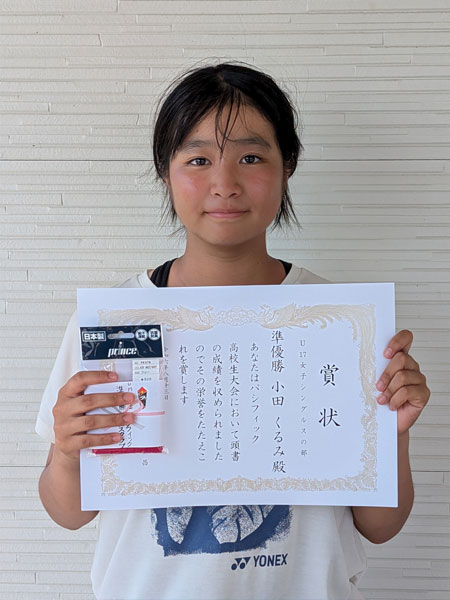 賞状
U17女子シングルスの部
準優勝 小田 くるみ殿
あなたはパシフィック
高校生大会において頭書
の成績を収められました
のでその栄誉をたたえこ
れを賞します
日本製
prince
YONEX